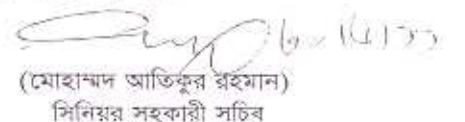 (মোহাম্মদ আতিকুর রহমান)
সিনিয়র সহকারী সচিব